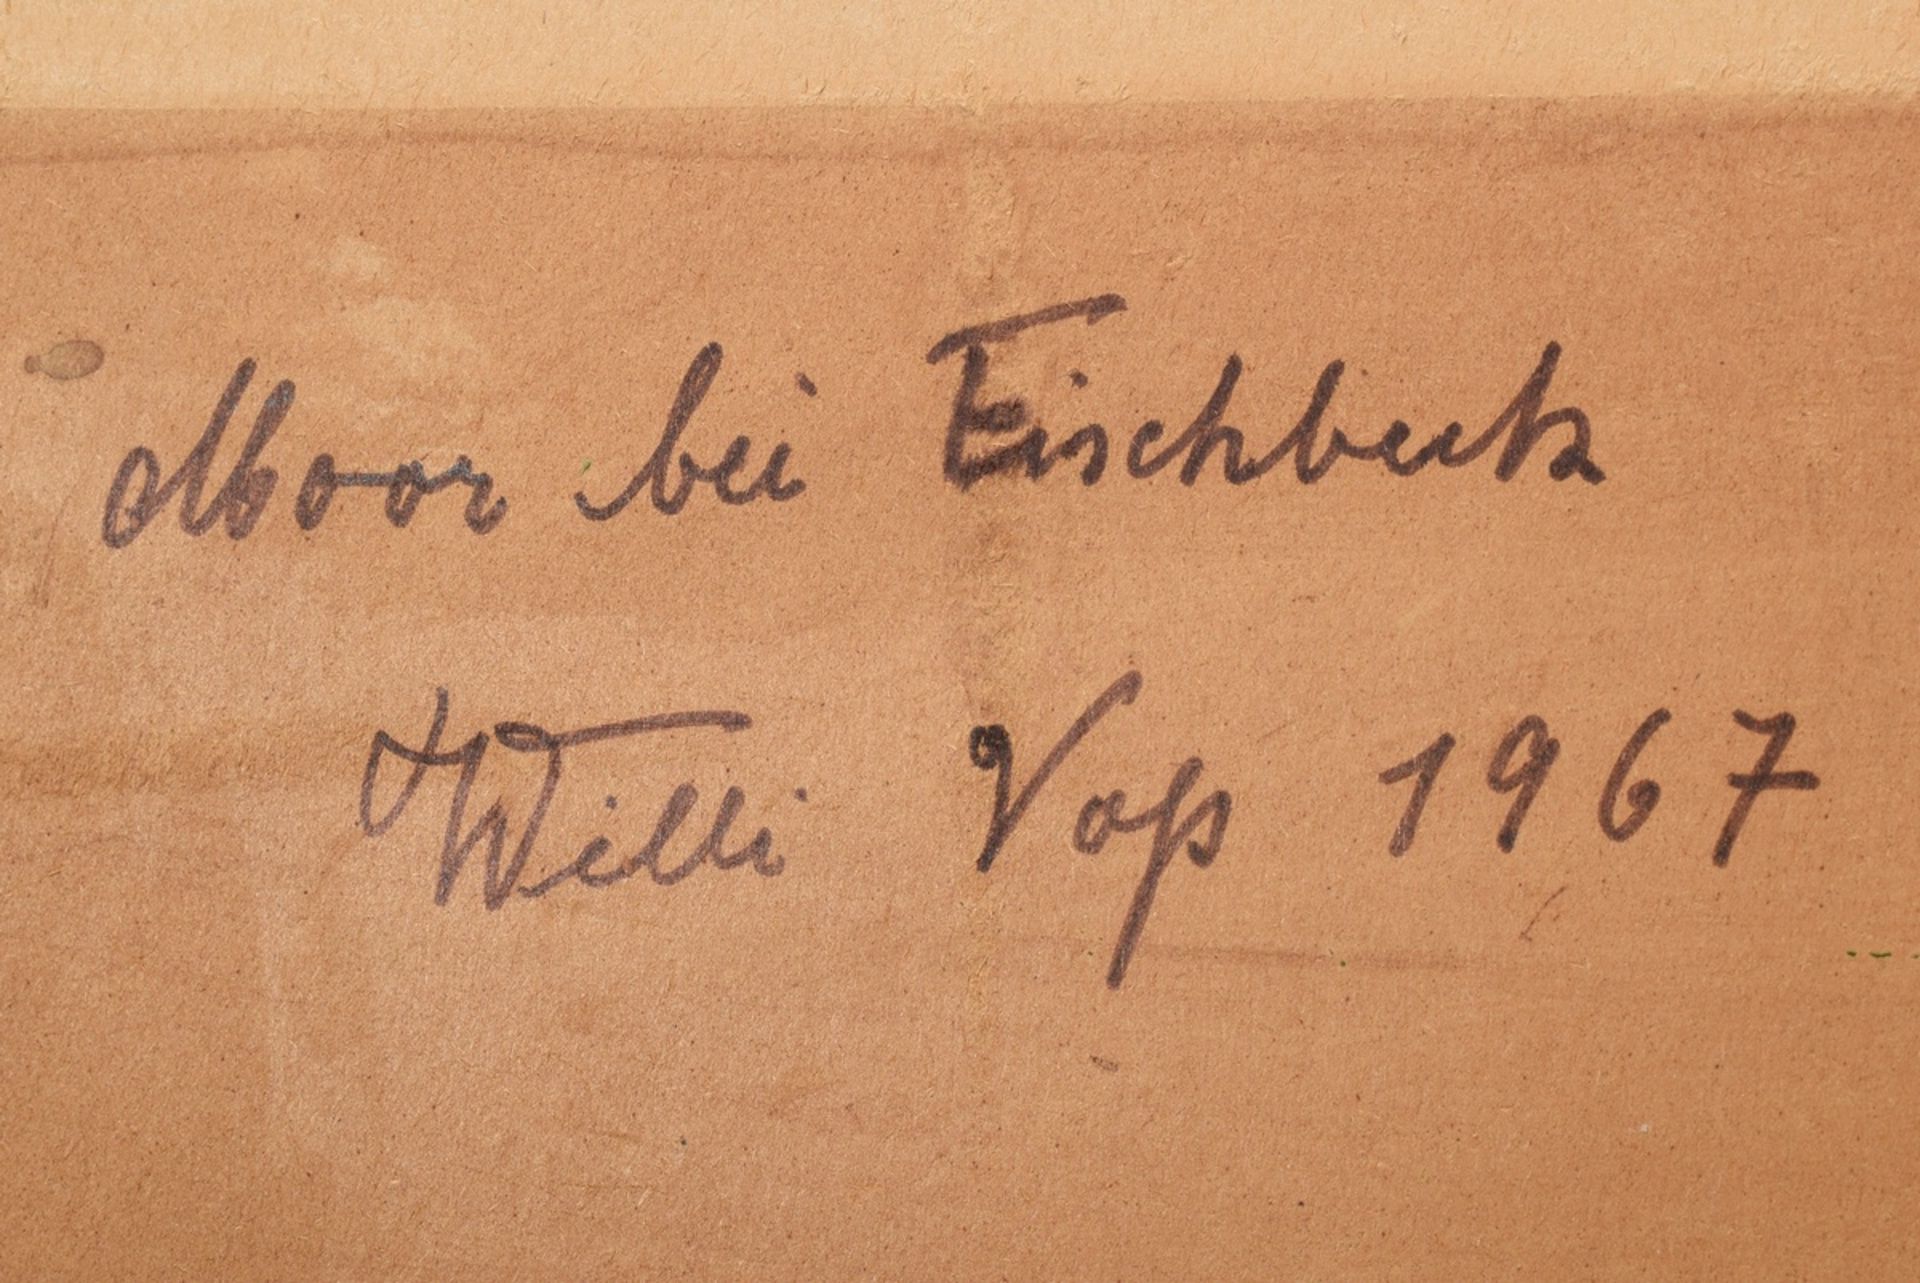 Moor bei Fischbeck
Willi Voß 1967